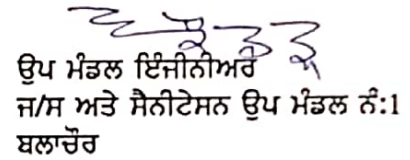 ਉਪ ਮੰਡਲ ਇੰਜੀਨੀਅਰ
ਜ/ਸ ਅਤੇ ਸੈਨੀਟੇਸਨ ਉਪ ਮੰਡਲ ਨੰ:1
ਬਲਾਚੌਰ